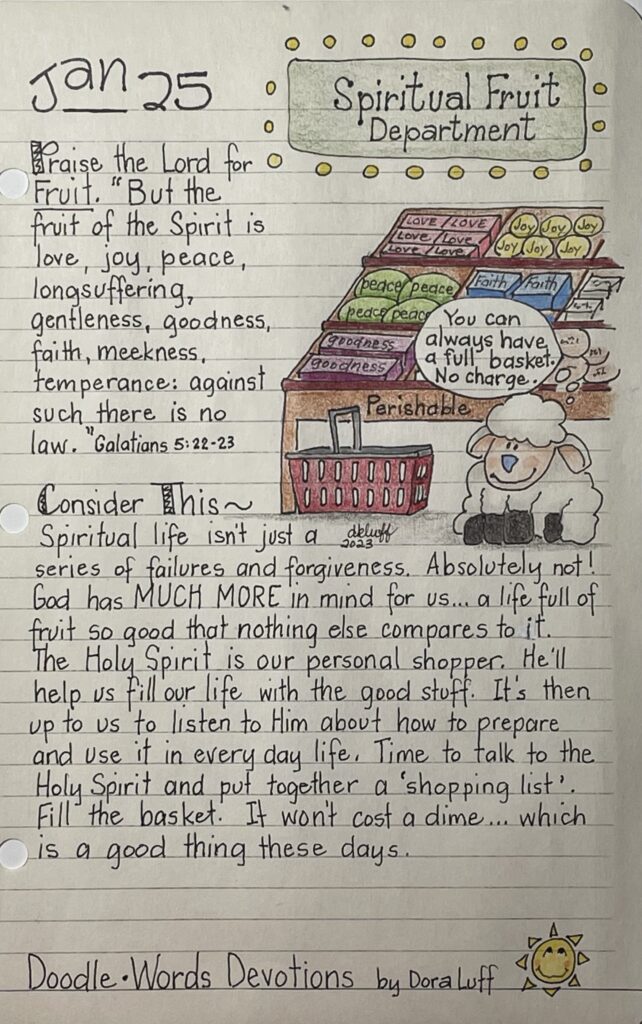 Jan 25
Spiritual Fruit
Department
Praise the Lord for
Fruit. "But the
fruit of the Spirit is
love, joy, peace,
longsuffering,
gentleness, goodness,
faith, meekness,
temperance: against
such there is no
law." Galatians 5:22-23
LOVE LOVE
Love Love
Love Love
Joy Joy Joy
Joy Joy Joy
peace peace
peace peace
Faith Faith
goodness
goodness
You can
always have
a full basket.
No charge.
Perishable
deluff
2023
Consider This~
Spiritual life isn't just a
series of failures and forgiveness. Absolutely not!
God has MUCH MORE in mind for us... a life full of
fruit so good that nothing else compares to it.
The Holy Spirit is our personal shopper. He'll
help us fill our life with the good stuff. It's then
up to us to listen to Him about how to prepare
and use it in every day life. Time to talk to the
Holy Spirit and put together a 'shopping list'.
Fill the basket. It won't cost a dime... which
is a good thing these days.
Doodle•Words Devotions by Dora Luff